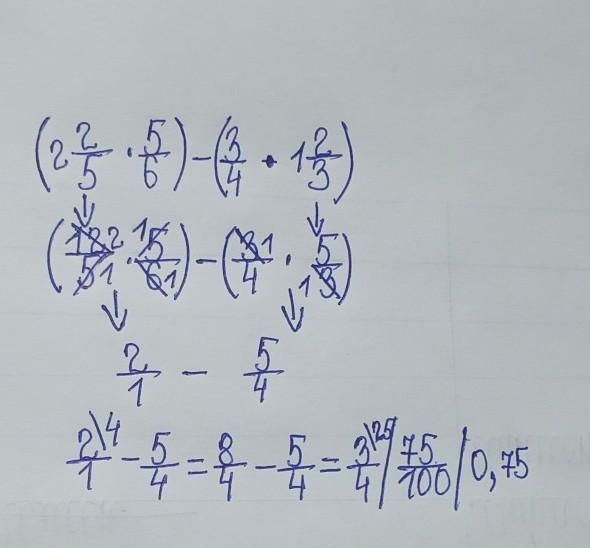 (2 2/5 · 5/6) - (3/4 · 1 2/3)
↓ ↓
(12 2/5 1 · 1 5/6 1) - (3 1/4 · 5/1 3)
↓ ↓
2/1 - 5/4
2\4/1 - 5/4 = 8/4 - 5/4 = 3\25/4 / 75/100 / 0,75